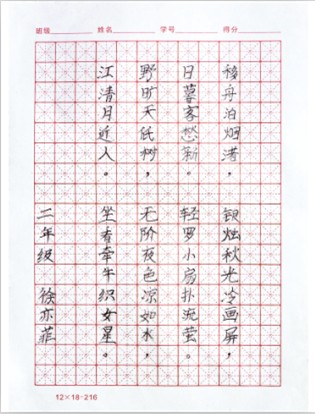 班级 姓名 学号 得分
移舟泊烟渚，
日暮客愁新。
野旷天低树，
江清月近人。
银烛秋光冷画屏，
轻罗小扇扑流萤。
无阶夜色凉如水，
坐看牵牛织女星。
二年级 徐亦菲
12×18-216